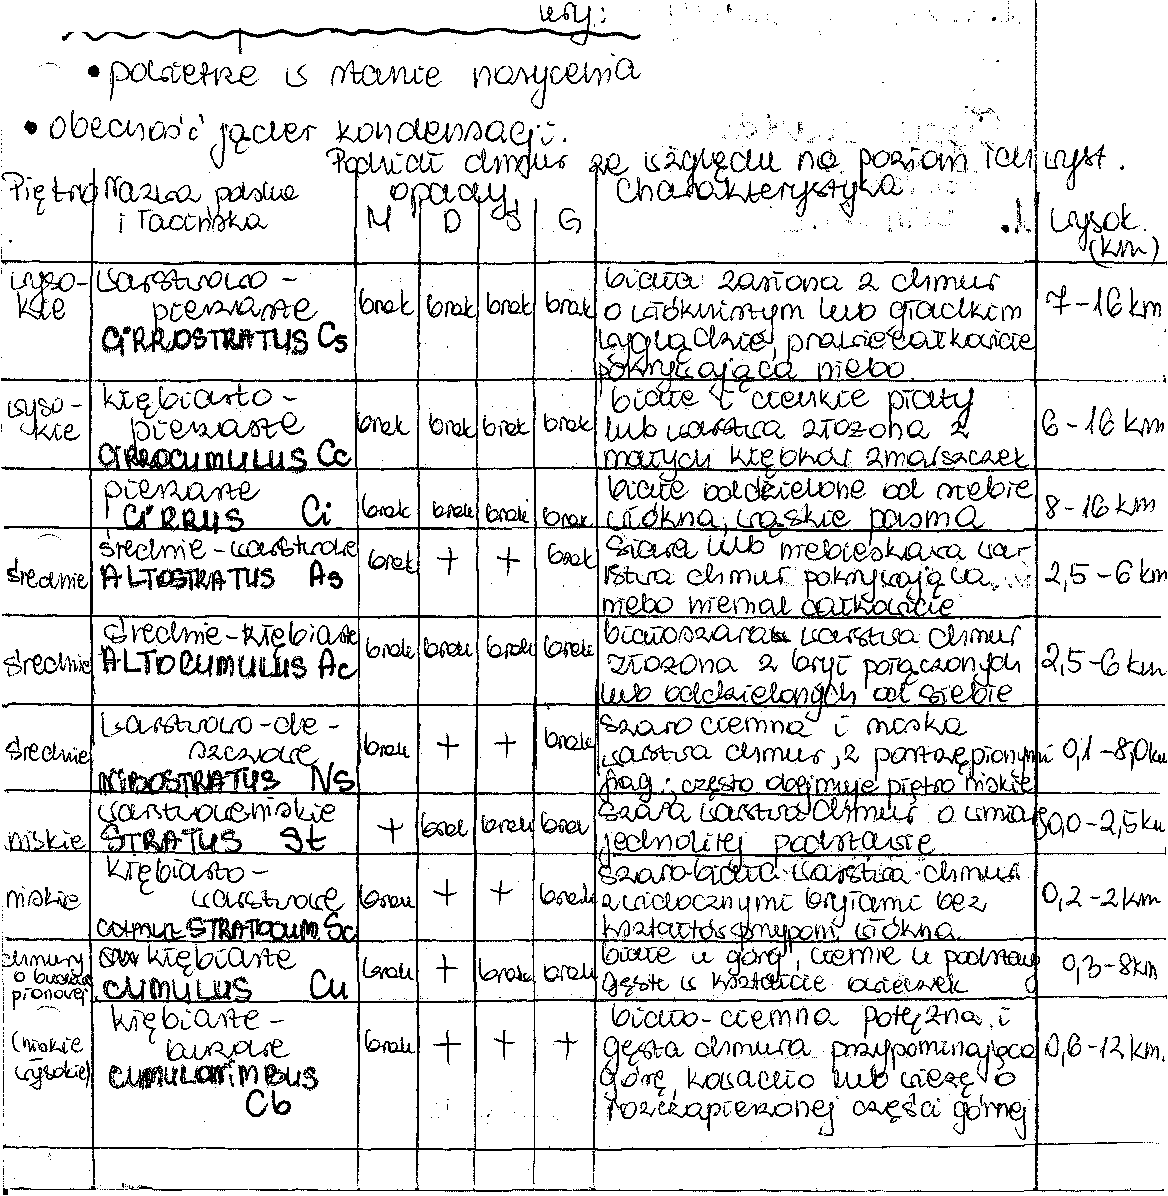 • powietrze w stanie nasycenia
• obecność jąder kondensacji.
Podział chmur ze względu na poziom ich wyst.
Piętro Nazwa polska i łacińska opady M D S G Charakterystyka wysok. (km)
wyso-
kie
warstwowo -
pierzaste
CIRROSTRATUS Cs
brak brak brak brak
biała zasłona z chmur
o włóknistym lub gładkim
wyglądzie, prawie całkowicie
pokrywająca niebo.
7 - 16 km
wyso -
kie
kłębiasto -
pierzaste
CIRROCUMULUS Cc
brak brak brak brak
białe i cienkie płaty
lub warstwa złożona z
małych kłębków zmarszczek
6 - 16 km
pierzaste
CIRRUS Ci
brak brak brak brak
białe oddzielone od siebie
włókna, wąskie pasma
8 - 16 km
średnie
średnie - warstwowe
ALTOSTRATUS As
brak + + brak
szara lub niebieskawa war
stwa chmur pokrywająca
niebo niemal całkowicie
2,5 - 6 km
średnie
średnie - kłębiaste
ALTOCUMULUS Ac
brak brak brak brak
białoszara warstwa chmur
złożona z brył połączonych
lub oddzielonych od siebie
2,5 - 6 km
średnie
warstwowo - de -
szczowe
NIBOSTRATUS Ns
brak + + brak
szaro ciemna i niska
warstwa chmur, z postrzępionymi
frag; często dojmuje piętro niskie
0,1 - 8,0km
niskie
warstwowe niskie
STRATUS St
+ brak brak brak
szara warstwa chmur o
jednolitej podstawie
0,0 - 2,5km
niskie
kłębiasto -
warstwowe
STRATOCUM. Sc
brak + + brak
szaro-biała warstwa chmur
z widocznymi bryłami bez
włókna.
0,2 - 2km
chmury
o budowie
pionowej
kłębiaste
CUMULUS Cu
brak + brak brak
białe u góry, ciemne u podstawy
gęste w kształcie owieczek
0,3 - 8km
(niskie
wysokie)
kłębiaste -
burzowe
CUMULONIMBUS
Cb
brak + + +
biało-ciemna potężna i
gęsta chmura przypominająca
górę, kowadło lub wieżę o
rozczapierzonej części górnej
0,6 - 12km.